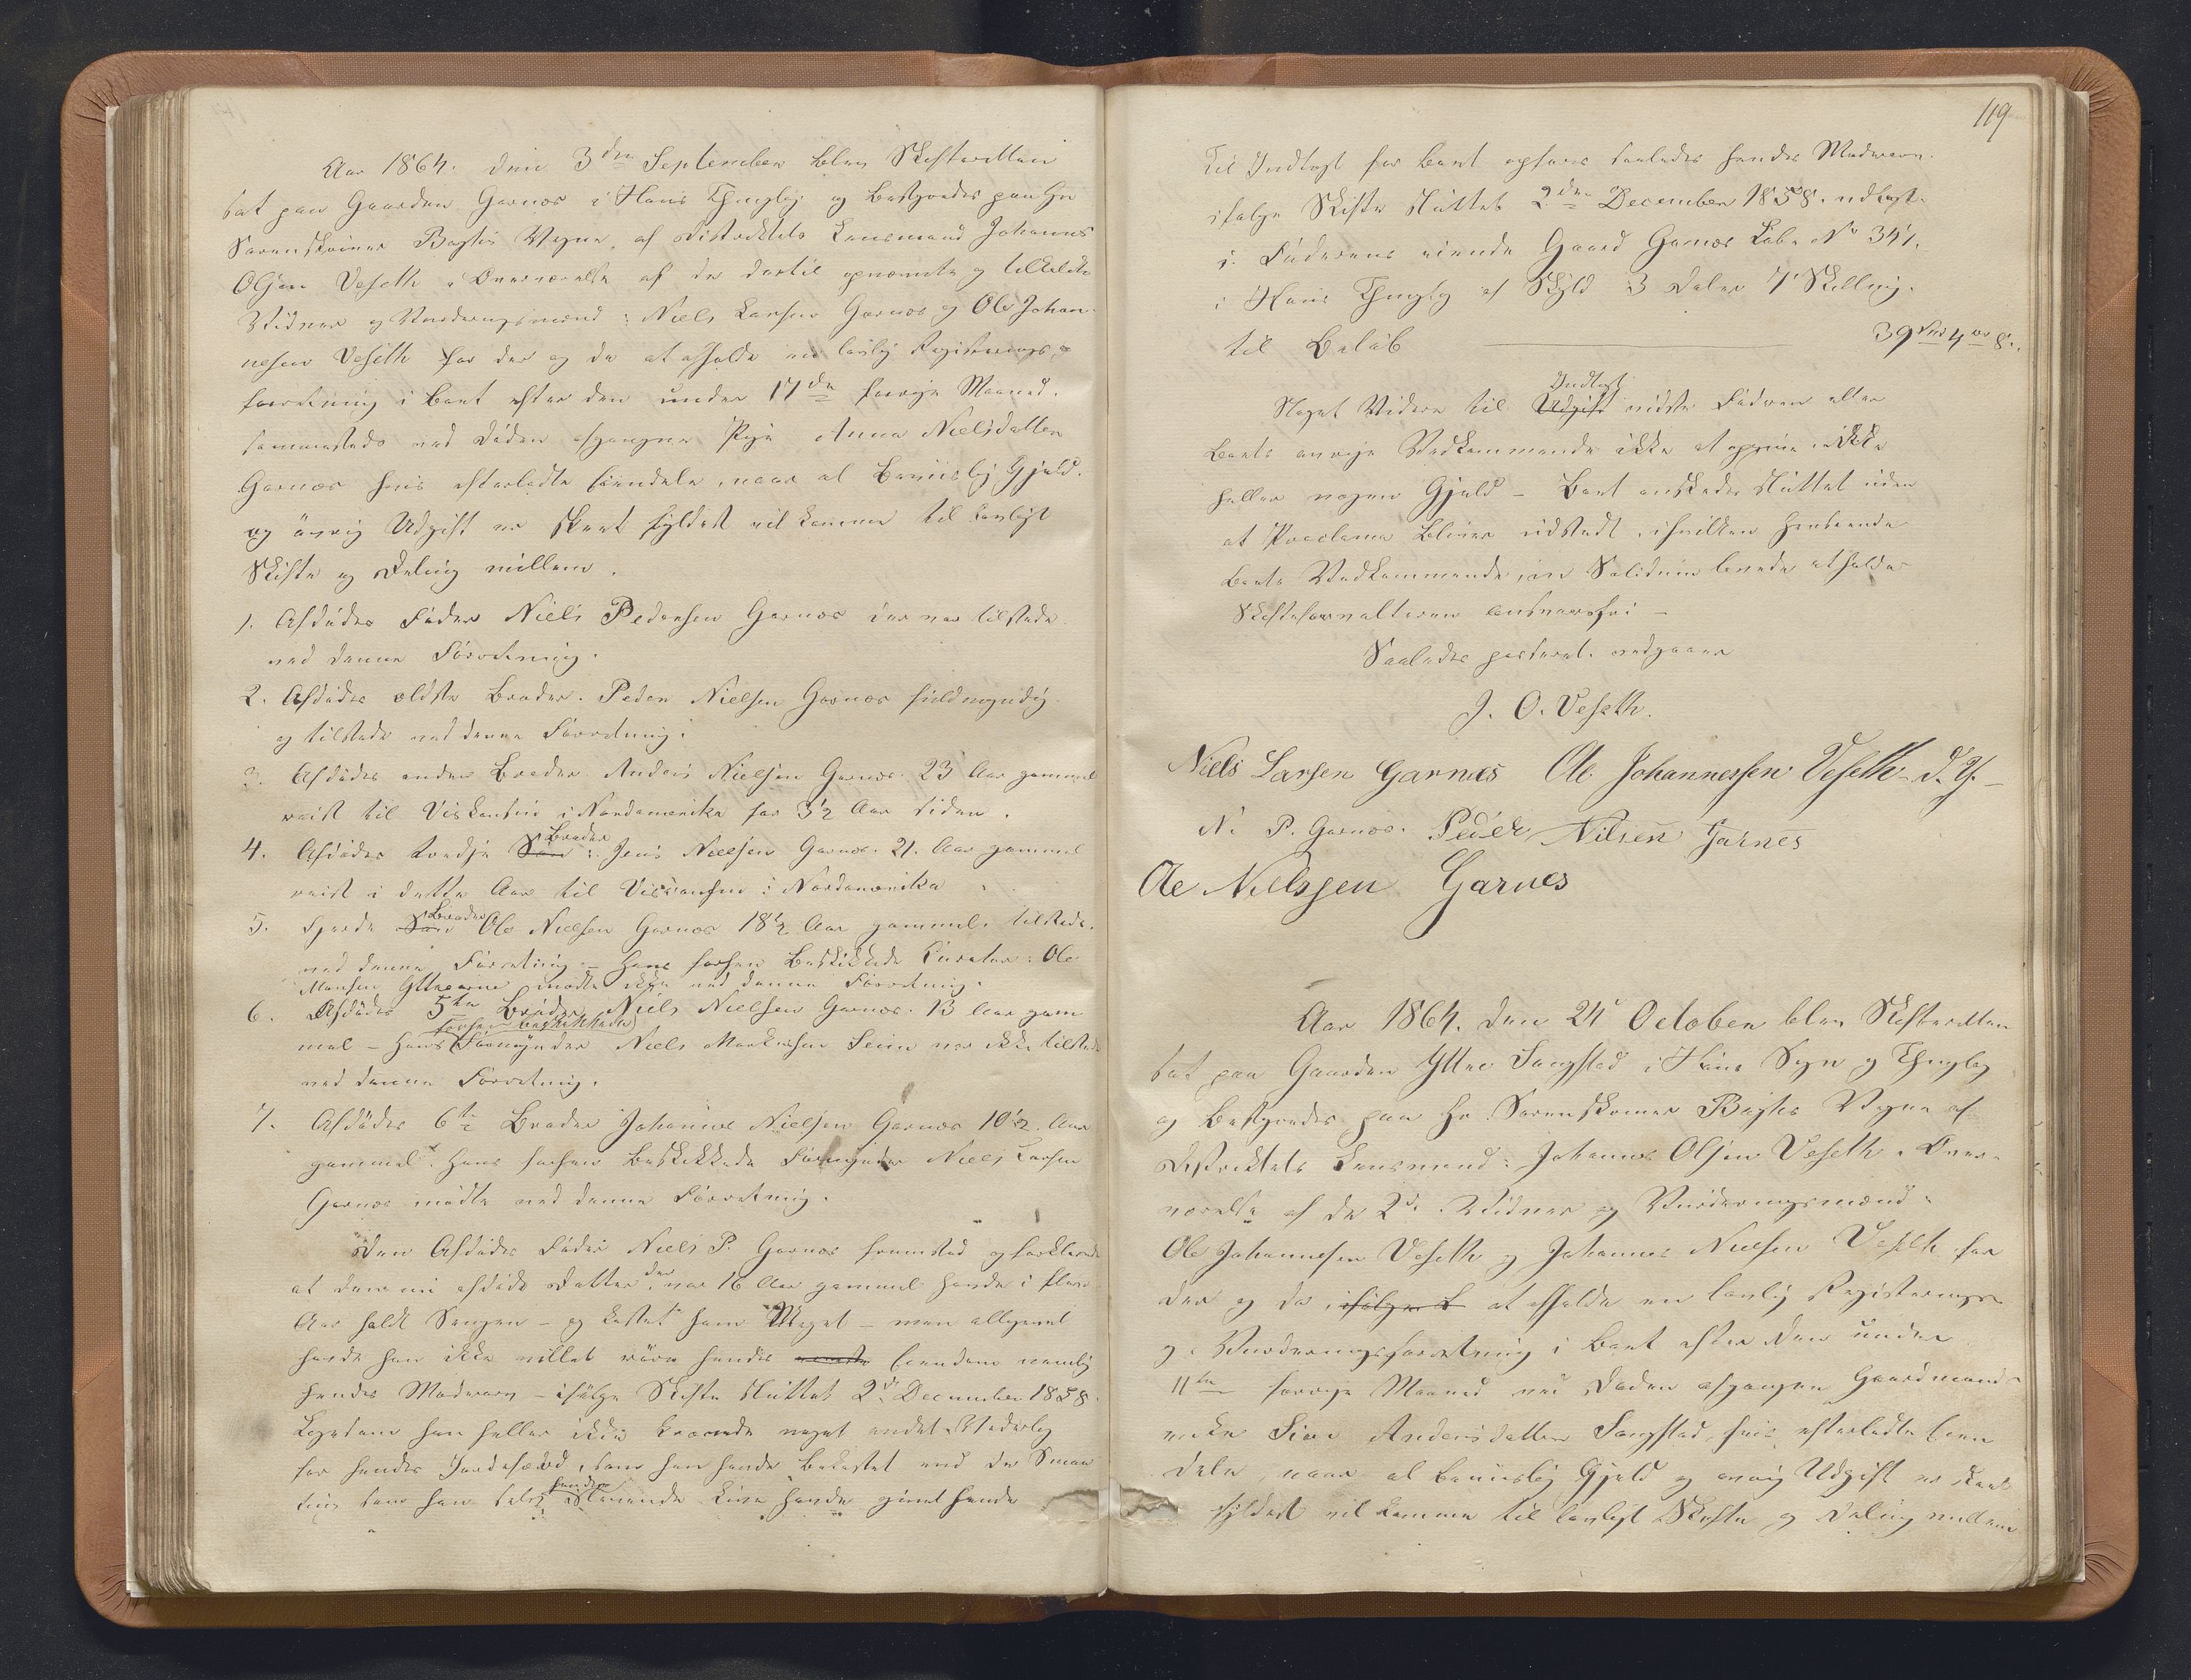 Aar 1864. den 3die September blev Skifteretten
sat paa Gaarden Garnæs i Hous Thinglag og Bestyredes paa Hr
Sorenskriver Bøghs Vegne, af Districktets Lensmand Johannes
Olsen Veseth i Overværelse af de dertil opnævnte og tilkaldte
Vidner og Vurderingsmænd: Niels Larsen Garnæs og Ole Johan-
nesen Veseth for der og da at afholde en lovlig Registrerings-
forretning i Boet efter den under 17de forrige Maaned.
sammesteds ved Døden afgangne Pige Anna Nielsdatter
Garnæs hvis efterladte Eiendele, naar al Beviislig Gjæld.
og øvrig Udgift er skeet fyldest vil komme til Lovligt
Skifte og Deling mellem.
1. Afdødes Fader Niels Pedersen Garnæs der var tilstede
ved denne Forretning.
2. Afdødes ældste Broder. Peder Nielsen Garnæs fuldmyndig
og tilstede ved denne Forretning.
3. Afdødes anden Broder Anders Nielsen Garnæs. 23 Aar gammel
reist til Viskonsin i Nordamerika for 3½ Aar siden.
4. Afdødes tredje Søn Broder: Jens Nielsen Garnæs. 21. Aar gammel
reist i dette Aar til Visconsin i Nordamerika
5. Fjerde Søn Broder Ole Nielsen Garnæs 18½ Aar gammel. tilstede.
ved denne Forretning – Hans forhen Beskikkede Curator: Ole
Monsen mødte ikke ved denne Forretning.
6. Afdødes 5te Broder Niels Nielsen Garnæs. 13 Aar gam
forhen beskikkede
mel – Hans Formynder Niels Markusen Seim var ikke tilstede
ved denne Forretning.
7. Afdødes 6te Broder Johannes Nielsen Garnæs 10½. Aar
gammel. Hans forhen Beskikkede Formynder Niels Larsen
Garnæs mødte ved denne Forretning.
Den Afdødes Fader Niels P. Garnæs fremstod og forklarede
at denne afdøde Datter der var 16 Aar gammel havde i flere
Aar holdt Sengen – og kostet ham Meget – men alligevel
havde han ikke villet røre hendes Eiendom nemlig
hendes Mødrearv – ifølge Skifte sluttet 2den December 1858.
Ligesom han heller ikke krævede noget andet Vederlag
for hendes Jordefærd, som han havde bekostet end de Smaa
ting som han selv hende Live havde givet hende
119
Til Indtægt for Boet opføres saaledes hendes Mødrearv.
ifølge Skifte sluttet 2den December 1858. udlagt.
i Faderens eiende Gaard Garnæs Løbe No 341.
i Hous Thinglag af Skyld 3 Daler 4 Skilling.
til Beløb 39 Spd 4 ort 8.
Noget Videre til Udgift Indtægt vidste Faderen eller
Boets øvrige Vedkommende ikke at opgive, ikke
heller nogen Gjæld – Boet ønskedes sluttet uden
at Proclama bliver udstedt, i hvilken Henseende
Boets Vedkommende, in Solidum lovede at holde
Skifteforvalteren ansvarsfri –
Saaledes passeret. vedgaaer
J. O. Veseth.
Niels Larsen Garnæs Ole Johannessen Veseth d. y.
N. P. Garnæs. Peder Nilsen Garnes
Ole Nielssen Garnes
Aar 1864. den 24de October blev Skifteretten
sat paa Gaarden Ytter Tangstad i Hous Sogn og Thinglag
og Bestyredes paa Hr Sorenskriver Bøghs Vegne af
Districktets Lensmand: Johannes Olsen Veseth i Over-
værelse af de 2de Vidner og Vurderingsmænd:
Ole Johannesen Veseth og Johannes Nielsen Veseth for
der og da ifølge L at afholde en lovlig Registrerings-
og Vurderingsforretning i Boet efter den under
11te forrige Maaned ved Døden afgangne Gaardmands-
enke Siri Andersdatter Tangstad, hvis efterladte Eien
dele, naar al beviislig Gjæld og øvrig Udgift er skeet
fyldest vil komme til lovligt Skifte og Deling mellem